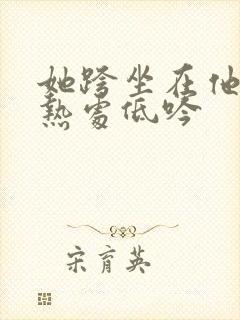 她跨坐在他
熱處低吟
宋育英